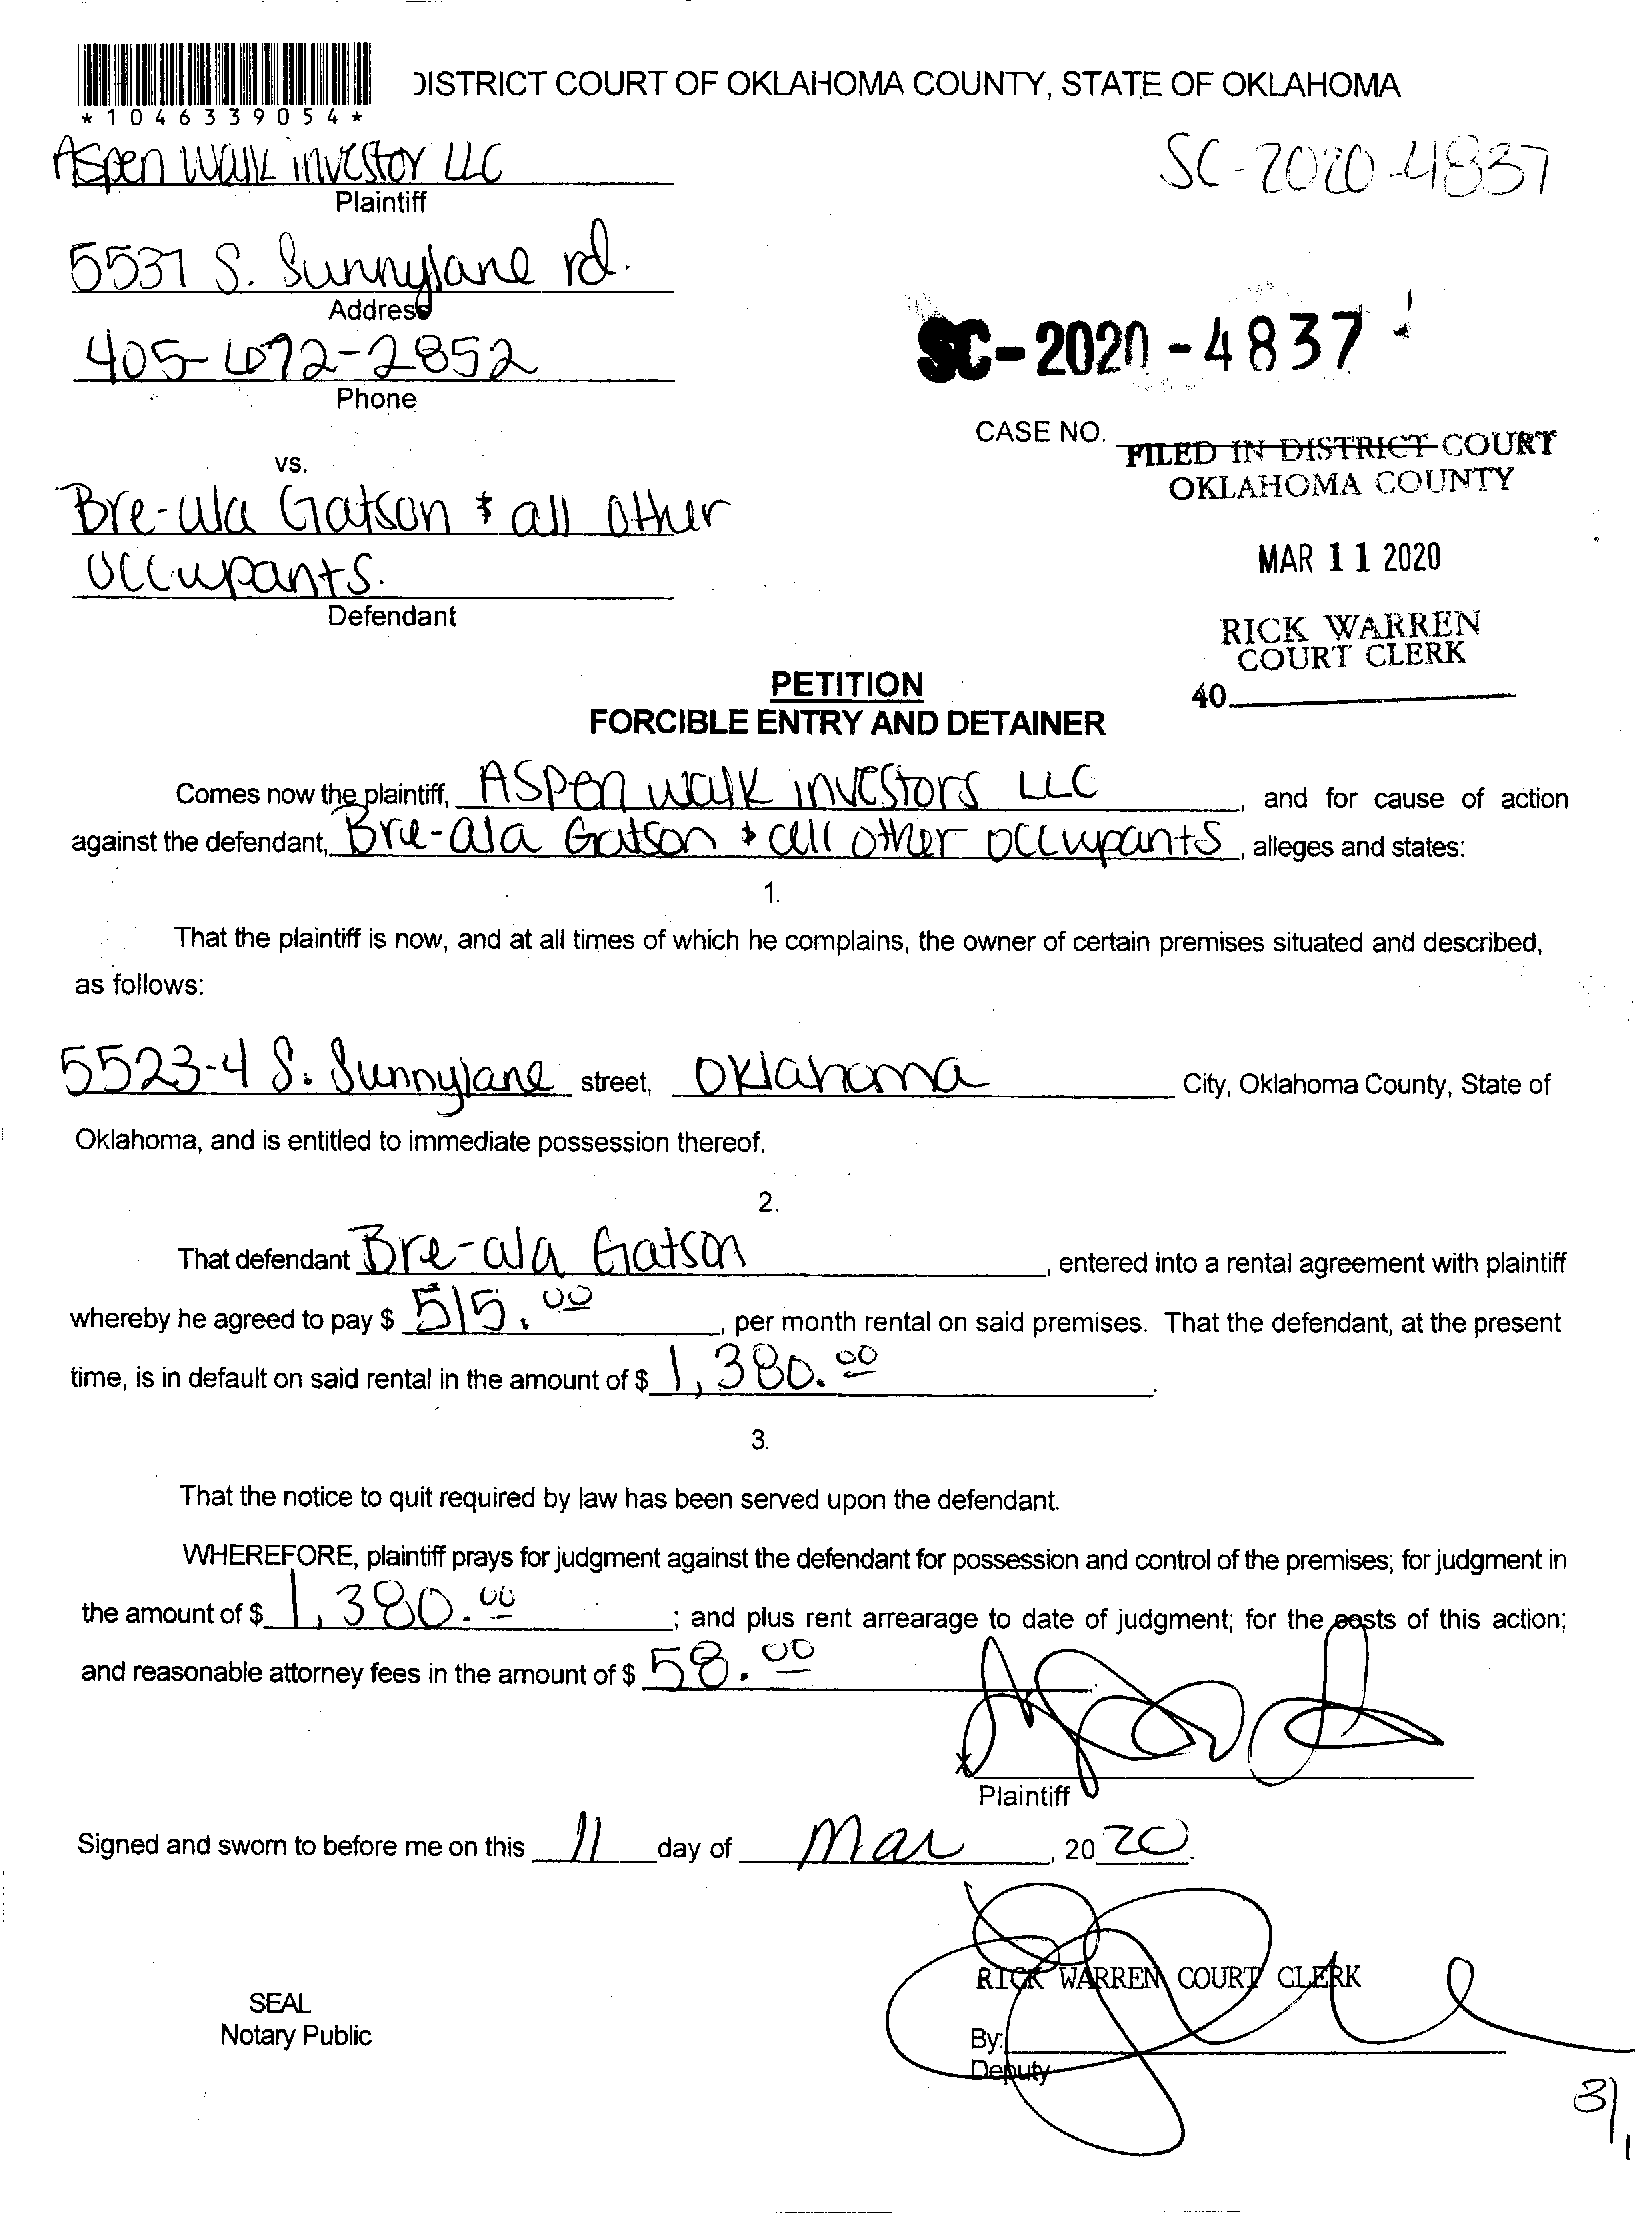 *1046339054*
DISTRICT COURT OF OKLAHOMA COUNTY, STATE OF OKLAHOMA
Aspen Walk investor LLC
Plaintiff
SC-2020-4837
5537 S. Sunnylane rd.
Address
405-672-2852
Phone
SC-2020-4837
CASE NO.
FILED IN DISTRICT COURT
OKLAHOMA COUNTY
vs.
Bre-ala Gatson & all other
occupants.
Defendant
MAR 11 2020
RICK WARREN
COURT CLERK
40
PETITION
FORCIBLE ENTRY AND DETAINER
Comes now the plaintiff, Aspen walk investors LLC, and for cause of action
against the defendant, Bre-ala Gatson & all other occupants, alleges and states:
1.
That the plaintiff is now, and at all times of which he complains, the owner of certain premises situated and described,
as follows:
5523-4 S. Sunnylane street, Oklahoma City, Oklahoma County, State of
Oklahoma, and is entitled to immediate possession thereof.
2.
That defendant Bre-ala Gatson, entered into a rental agreement with plaintiff
whereby he agreed to pay $ 515.00, per month rental on said premises. That the defendant, at the present
time, is in default on said rental in the amount of $ 1,380.00.
3.
That the notice to quit required by law has been served upon the defendant.
WHEREFORE, plaintiff prays for judgment against the defendant for possession and control of the premises; for judgment in
the amount of $ 1,380.00; and plus rent arrearage to date of judgment; for the costs of this action;
and reasonable attorney fees in the amount of $ 58.00
Plaintiff
Signed and sworn to before me on this 11 day of Mar, 2020.
RICK WARREN COURT CLERK
SEAL
Notary Public
By:
Deputy